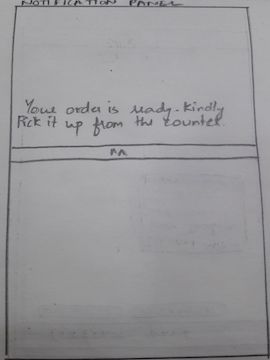 NOTIFICATION PANEL
Your order is ready. Kindly
Pick it up from the counter.